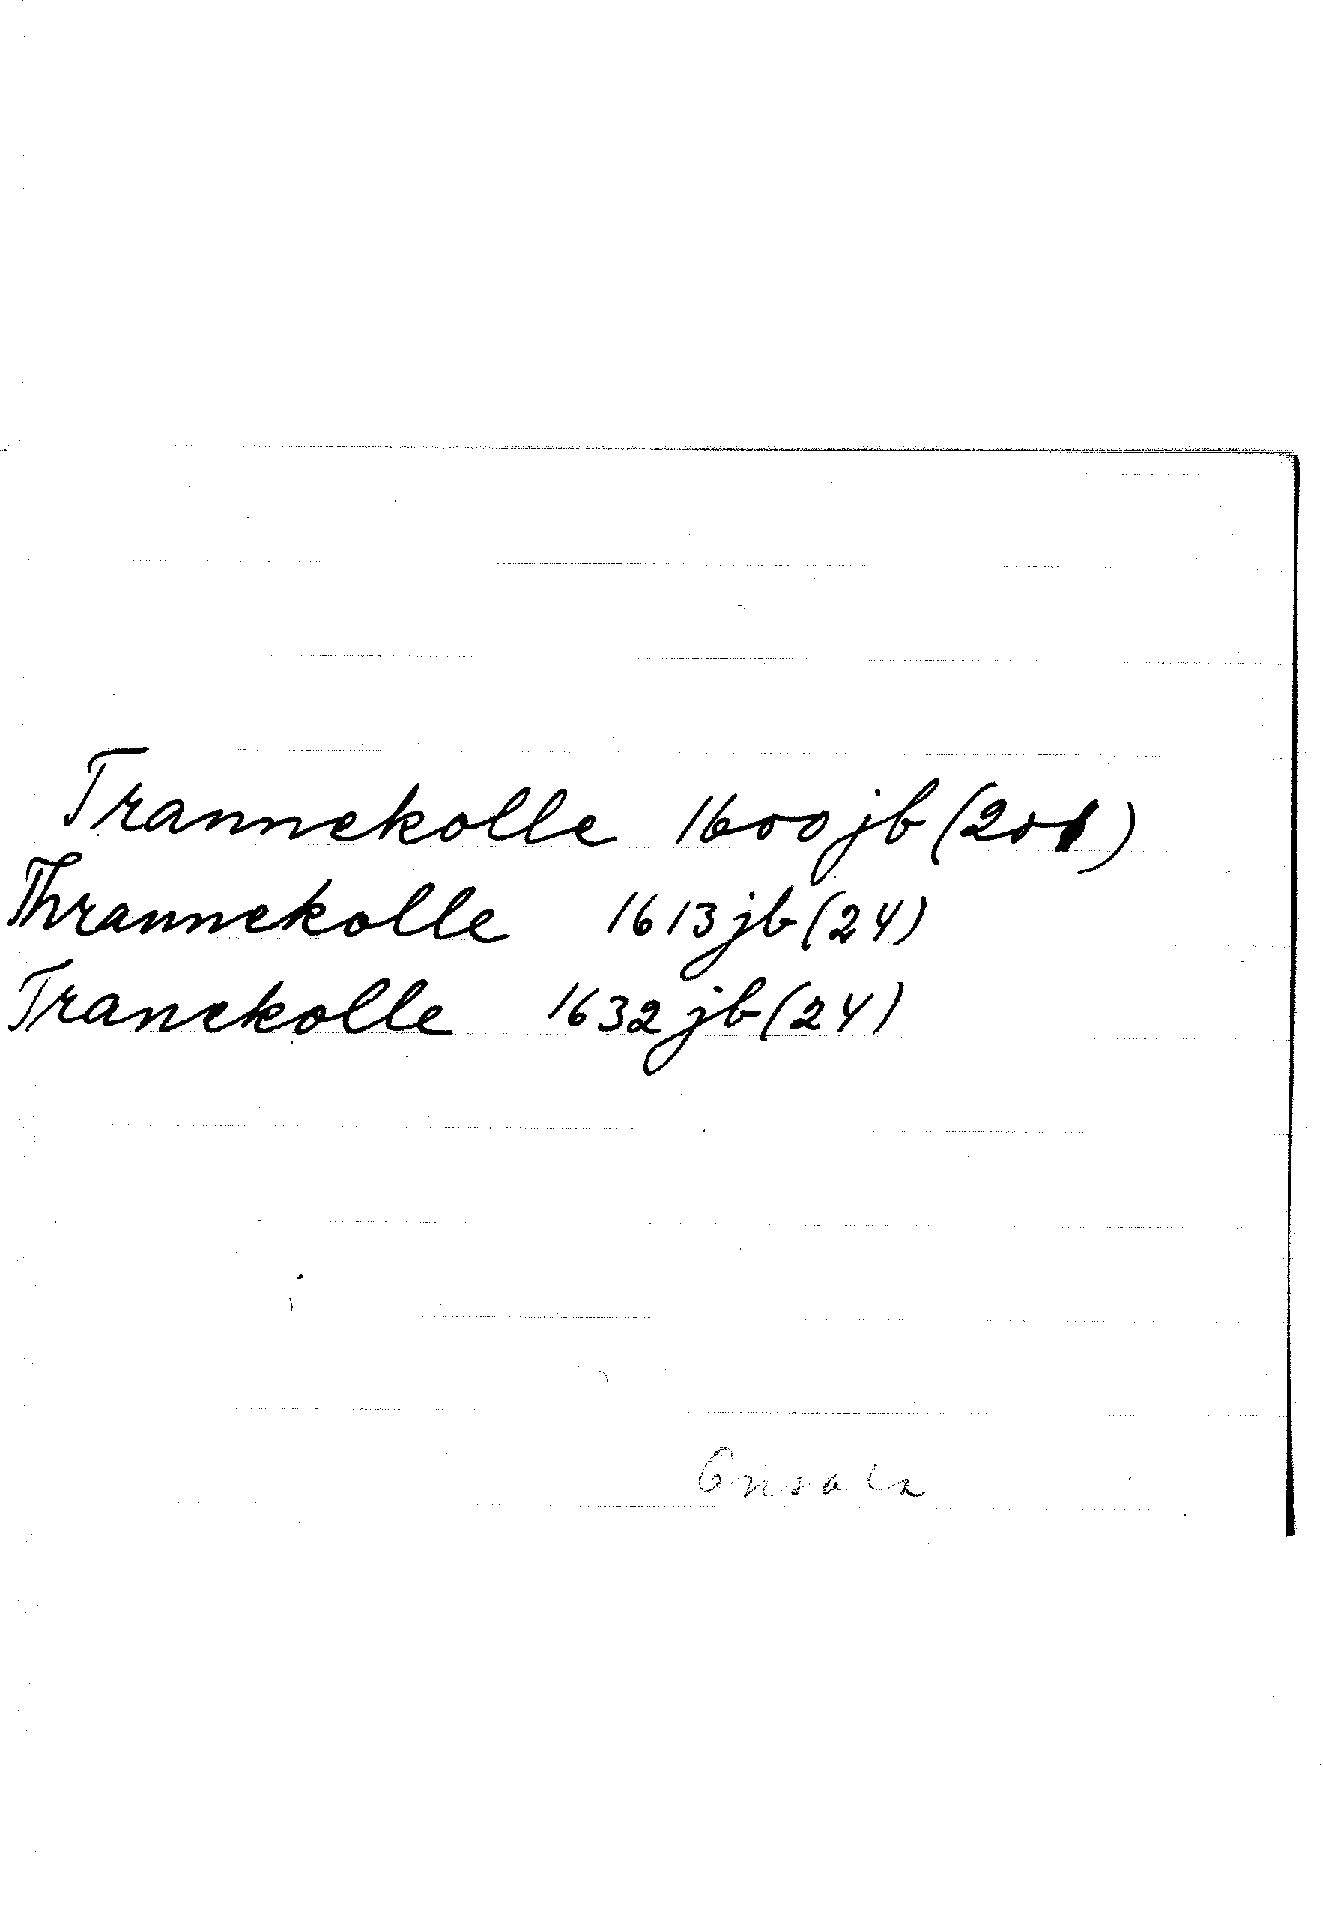 Trannekolle 1600 jb (201)
Thrannekolle 1613 jb (24)
Tranekolle 1632 jb (24)
Onsala